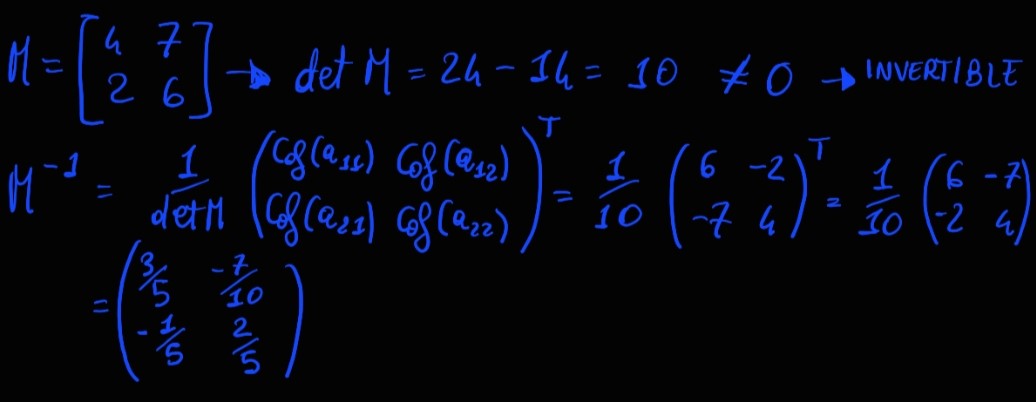 M = [4 7; 2 6] → det M = 24 - 14 = 10 ≠ 0 → INVERTIBLE
M⁻¹ = 1/det M (Cof(a₁₁) Cof(a₁₂); Cof(a₂₁) Cof(a₂₂))ᵀ = 1/10 (6 -2; -7 4)ᵀ = 1/10 (6 -7; -2 4)
= (3/5 -7/10; -1/5 2/5)